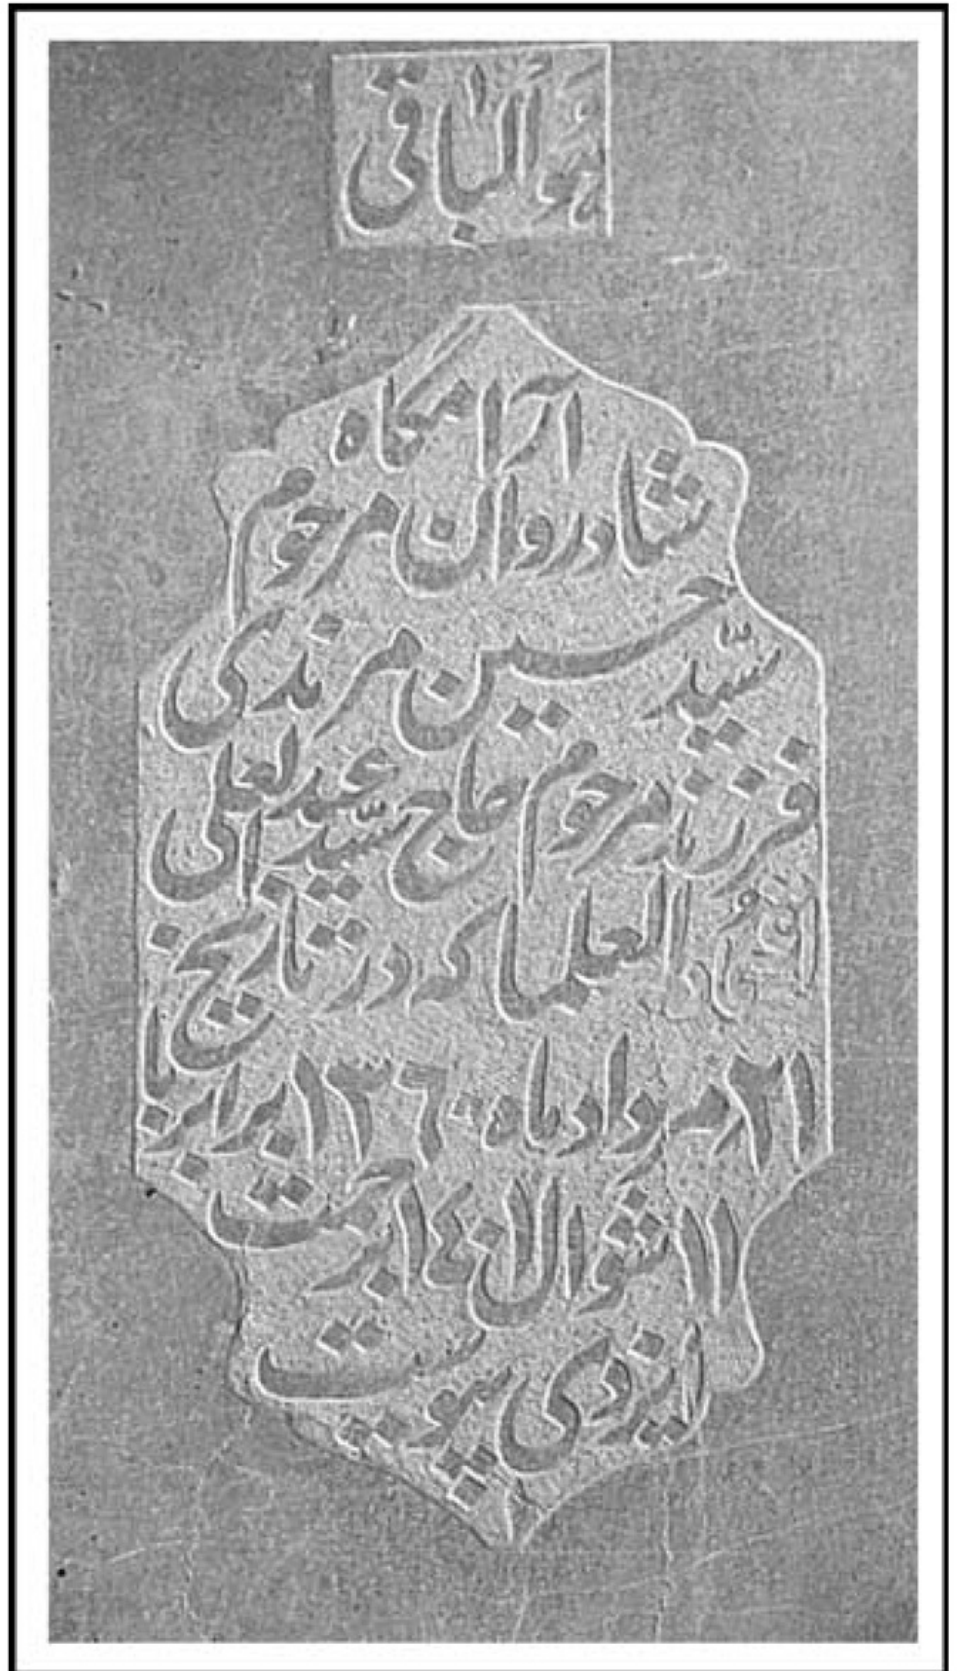 هُوَ الْباقی
آرامگاه
شادروان مرحوم
سیّد حسین مرندی
فرزند مرحوم حاج سیّد عبدالعلی
العلما که در تاریخ
۲۱ مرداد ماه ۱۳۶۰ برابر با
۱۱ شوال ۱۴۰۱ برحمت
ایزدی پیوست